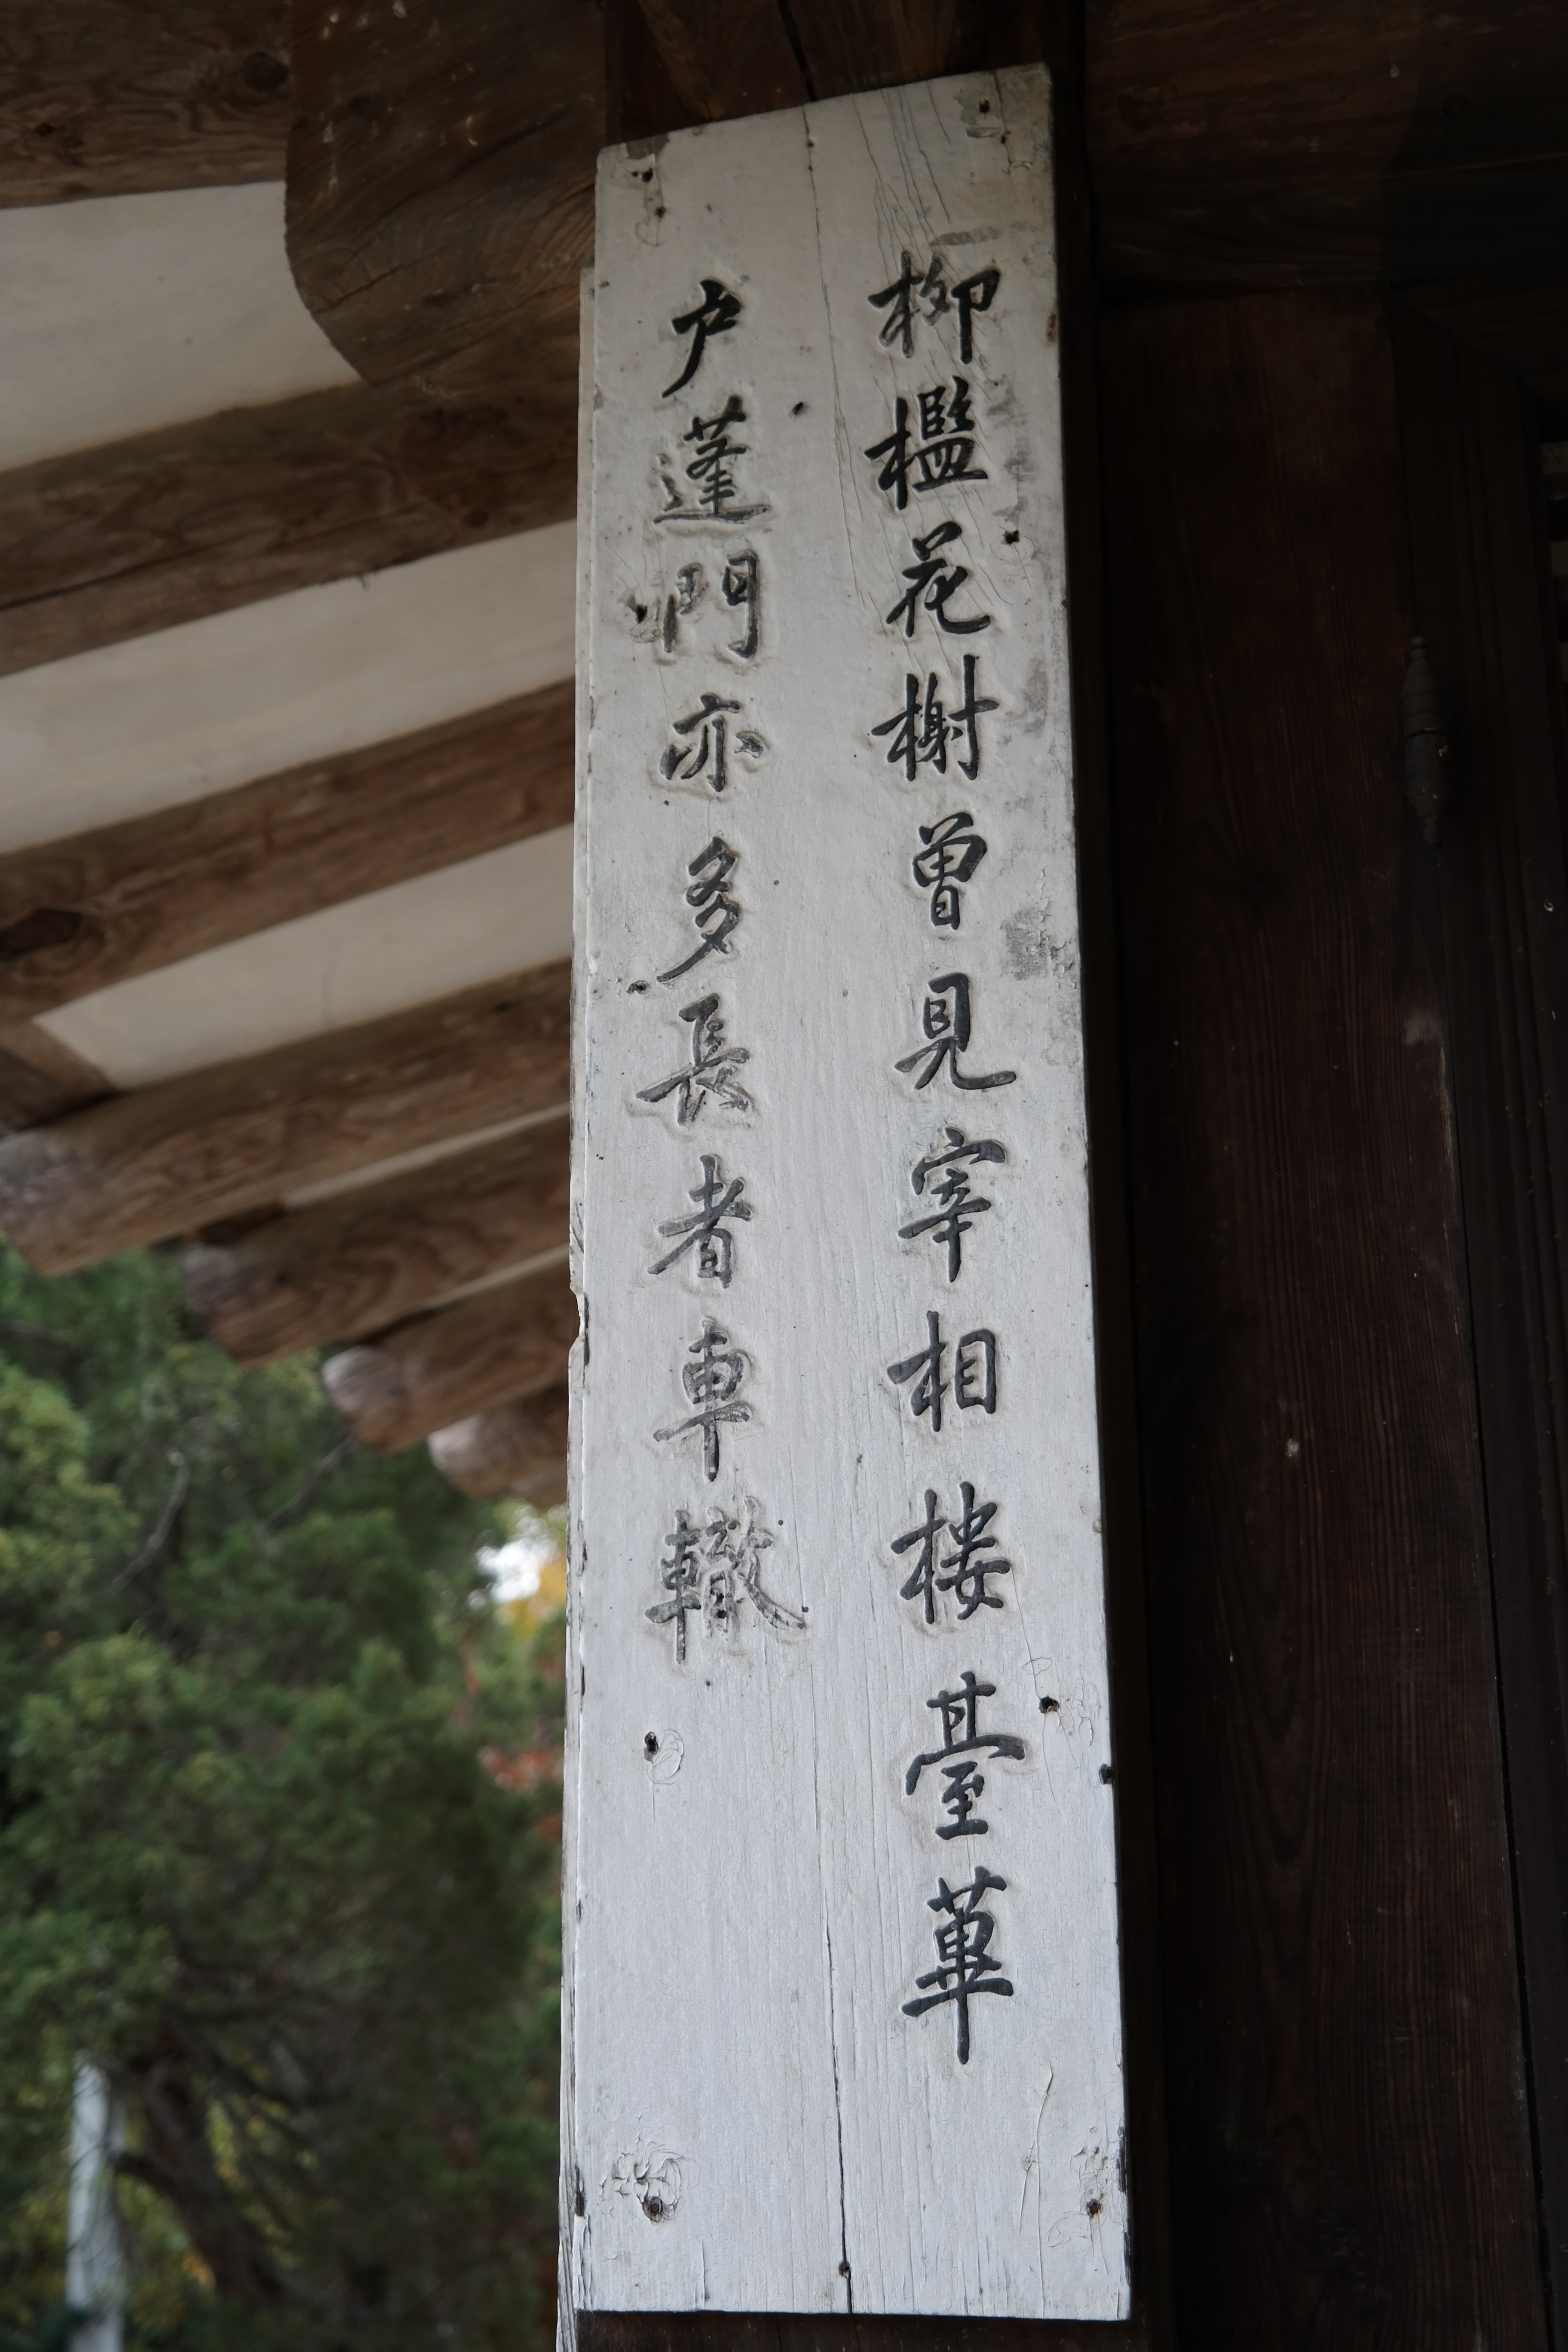 柳檻花榭曾見宰相樓臺蓽
户蓬門亦多長者車轍